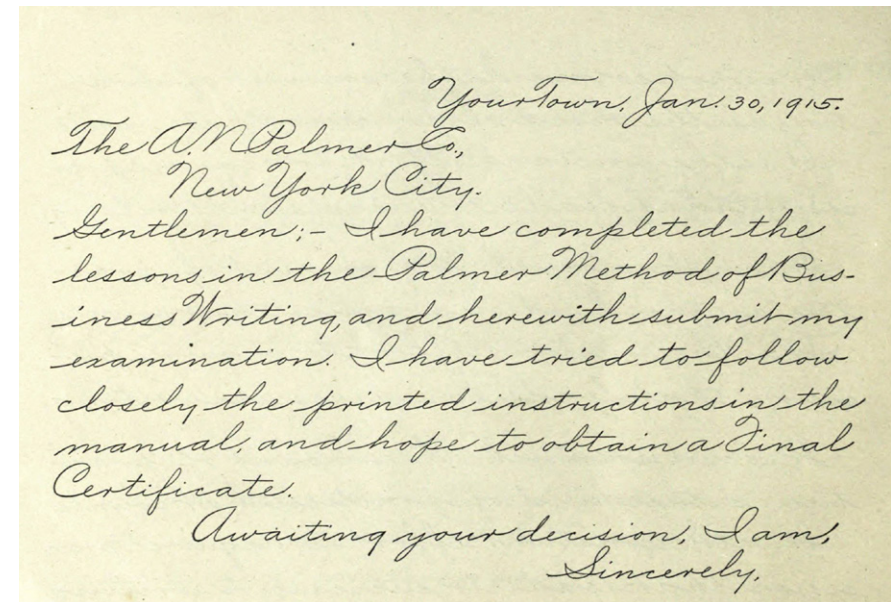 Your Town, Jan. 30, 1915.
The A. N. Palmer Co.,
New York City.
Gentlemen:- I have completed the
lessons in the Palmer Method of Bus-
iness Writing, and herewith submit my
examination. I have tried to follow
closely the printed instructions in the
manual, and hope to obtain a Final
Certificate.
Awaiting your decision, I am,
Sincerely,